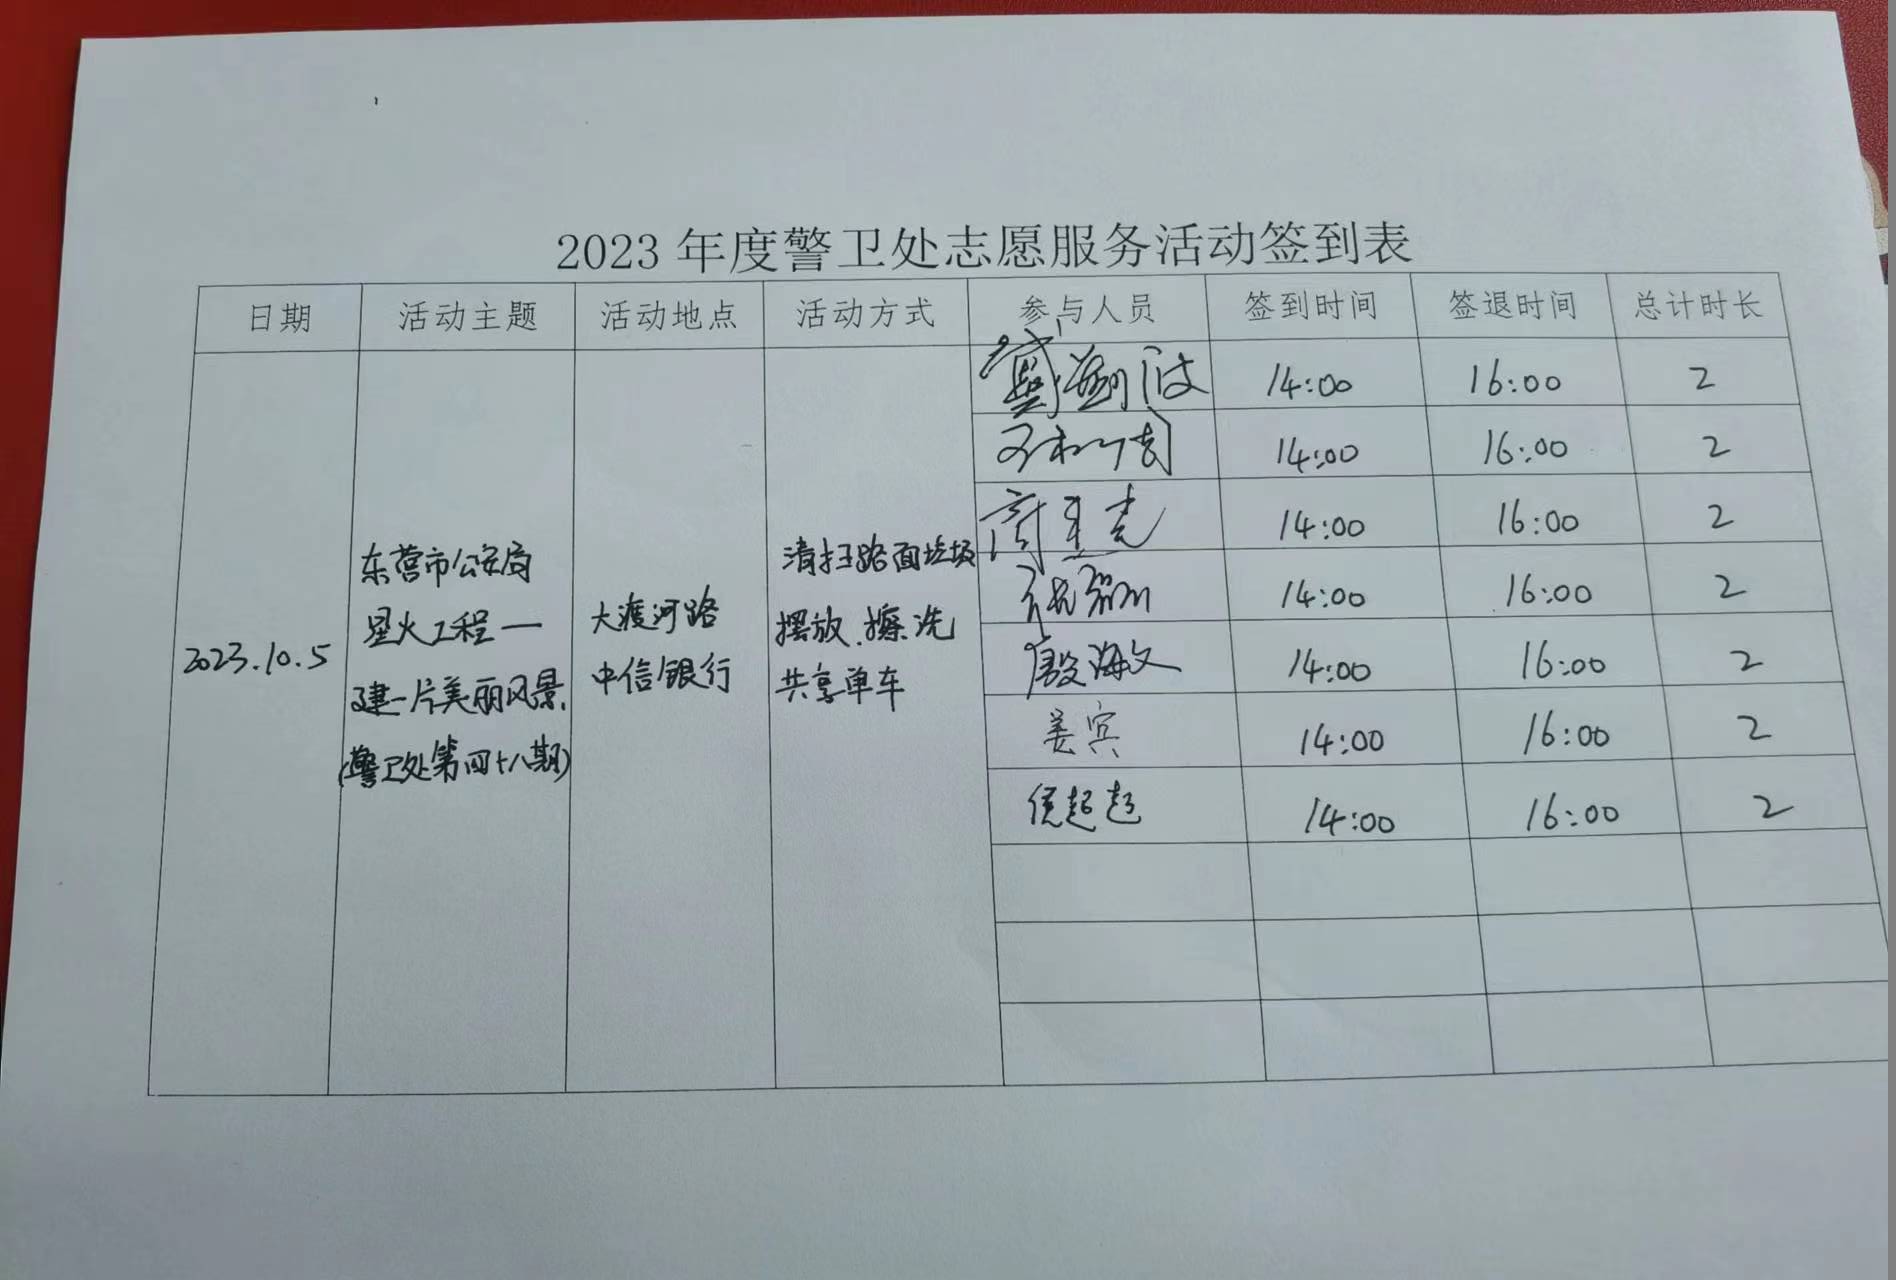 2023年度警卫处志愿服务活动签到表
日期 活动主题 活动地点 活动方式 参与人员 签到时间 签退时间 总计时长
2023.10.5
东营市公安局
星火工程一
建一片美丽风景.
(警卫处第四十八期)
大渡河路
中信银行
清扫路面垃圾
摆放.擦洗
共享单车
14:00 16:00 2
14:00 16:00 2
14:00 16:00 2
14:00 16:00 2
殷海文 14:00 16:00 2
姜宾 14:00 16:00 2
侯起起 14:00 16:00 2